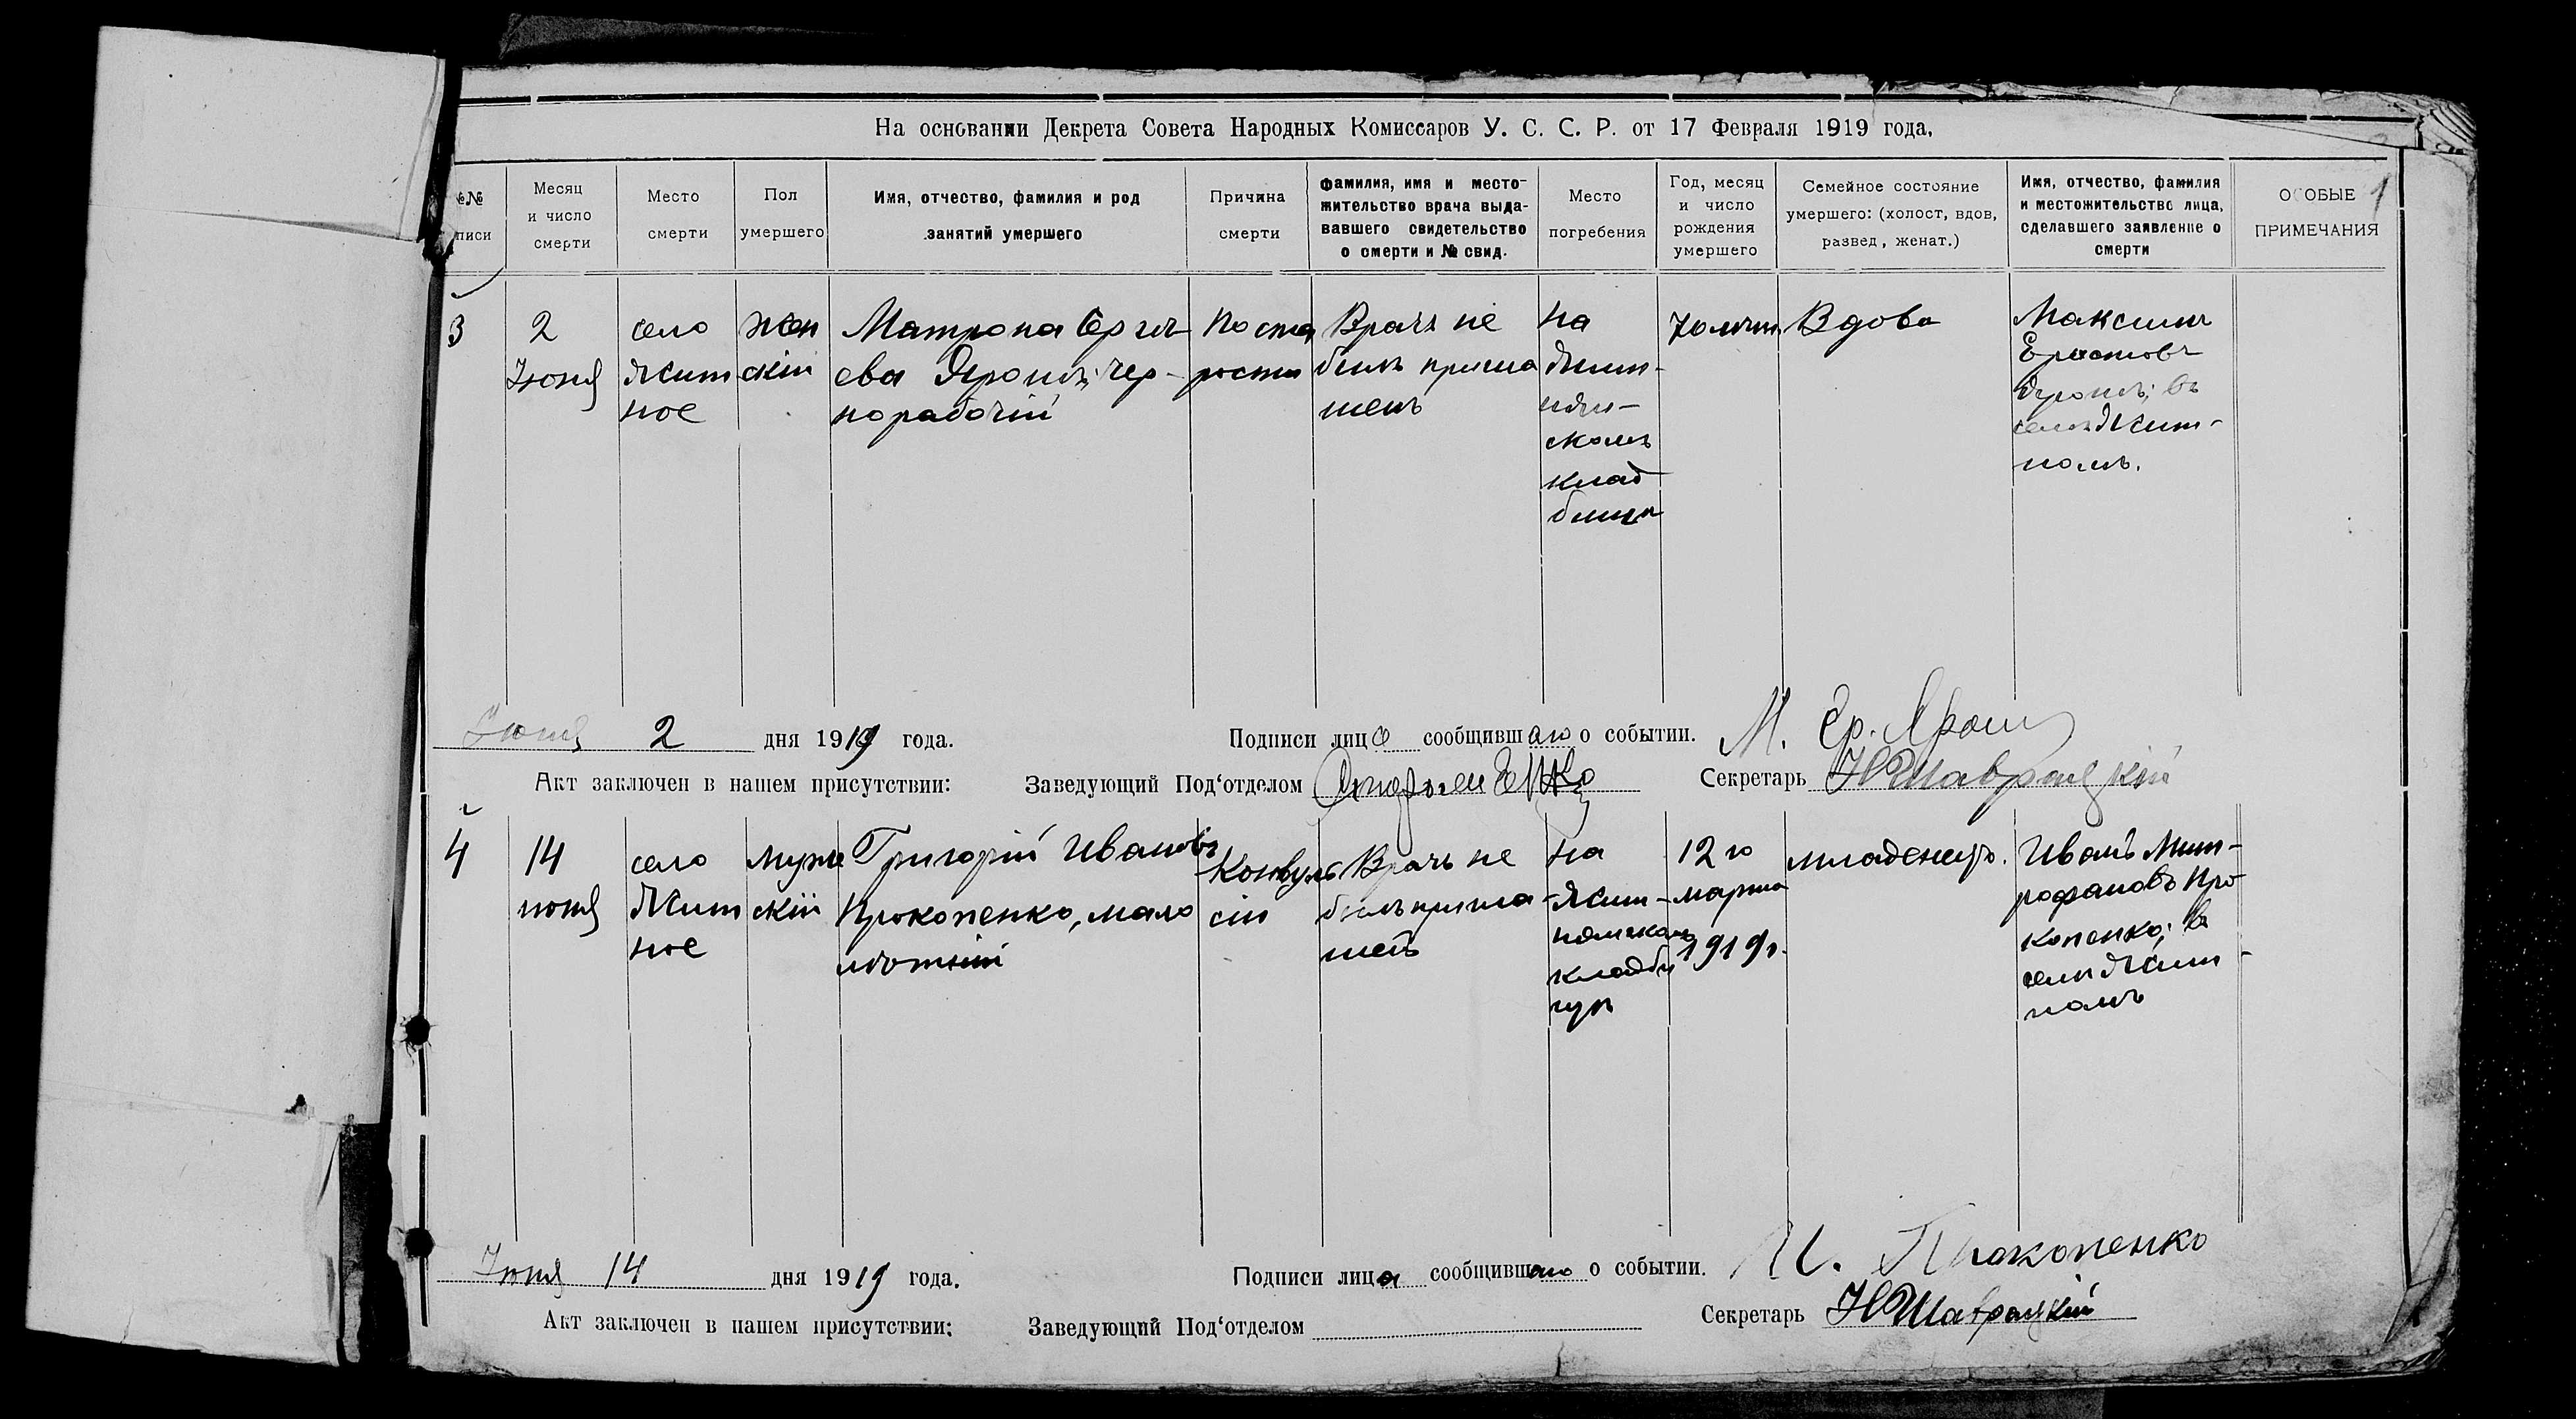 На основании Декрета Совета Народных Комиссаров У. С. С. Р. от 17 Февраля 1919 года.
№№ писи
Месяц и число смерти
Место смерти
Пол умершего
Имя, отчество, фамилия и род занятий умершего
Причина смерти
фамилия, имя и место- жительство врача выда- вавшего свидетельство о смерти и № свид.
Место погребения
Год, месяц и число рождения умершего
Семейное состояние умершего: (холост, вдов, развед, женат.)
Имя, отчество, фамилия и местожительство лица, сделавшего заявление о смерти
ОСОБЫЕ ПРИМЕЧАНИЯ
1
3
2
Іюня
село
Жит
ное
Жен
скій
Матрона Сергѣ-
ева Ярошъ; чер-
норабочій
По ста
рости
Врачъ не
былъ пригла
шенъ
На
Жит-
нян-
скомъ
клад
бищѣ
70 лѣтъ
Вдова
Максимъ
Ерастовъ
Ярошъ; въ
селѣ Жит-
номъ.
Іюня 2 дня 1919 года.
Подписи лица сообщившаго о событии. М. Ер. Ярош
Акт заключен в нашем присутствии: Заведующий Под‘отделом
Секретарь
4
14
июня
село
Жит
ное
Муж
скій
Григорій Ивановъ
Прокопенко, мало
лѣтній
Конвуль
сіи
Врачъ не
былъ пригла-
шенъ
На
Жит-
нянскомъ
кладби
щѣ
12 го
марта
1919 г.
младенецъ.
Иванъ Мит-
рофановъ Про-
копенко; въ
селѣ Жит-
номъ
Іюня 14 дня 1919 года.
Подписи лица сообщившаго о событии. И. Прокопенко
Акт заключен в нашем присутствии: Заведующий Под‘отделом
Секретарь